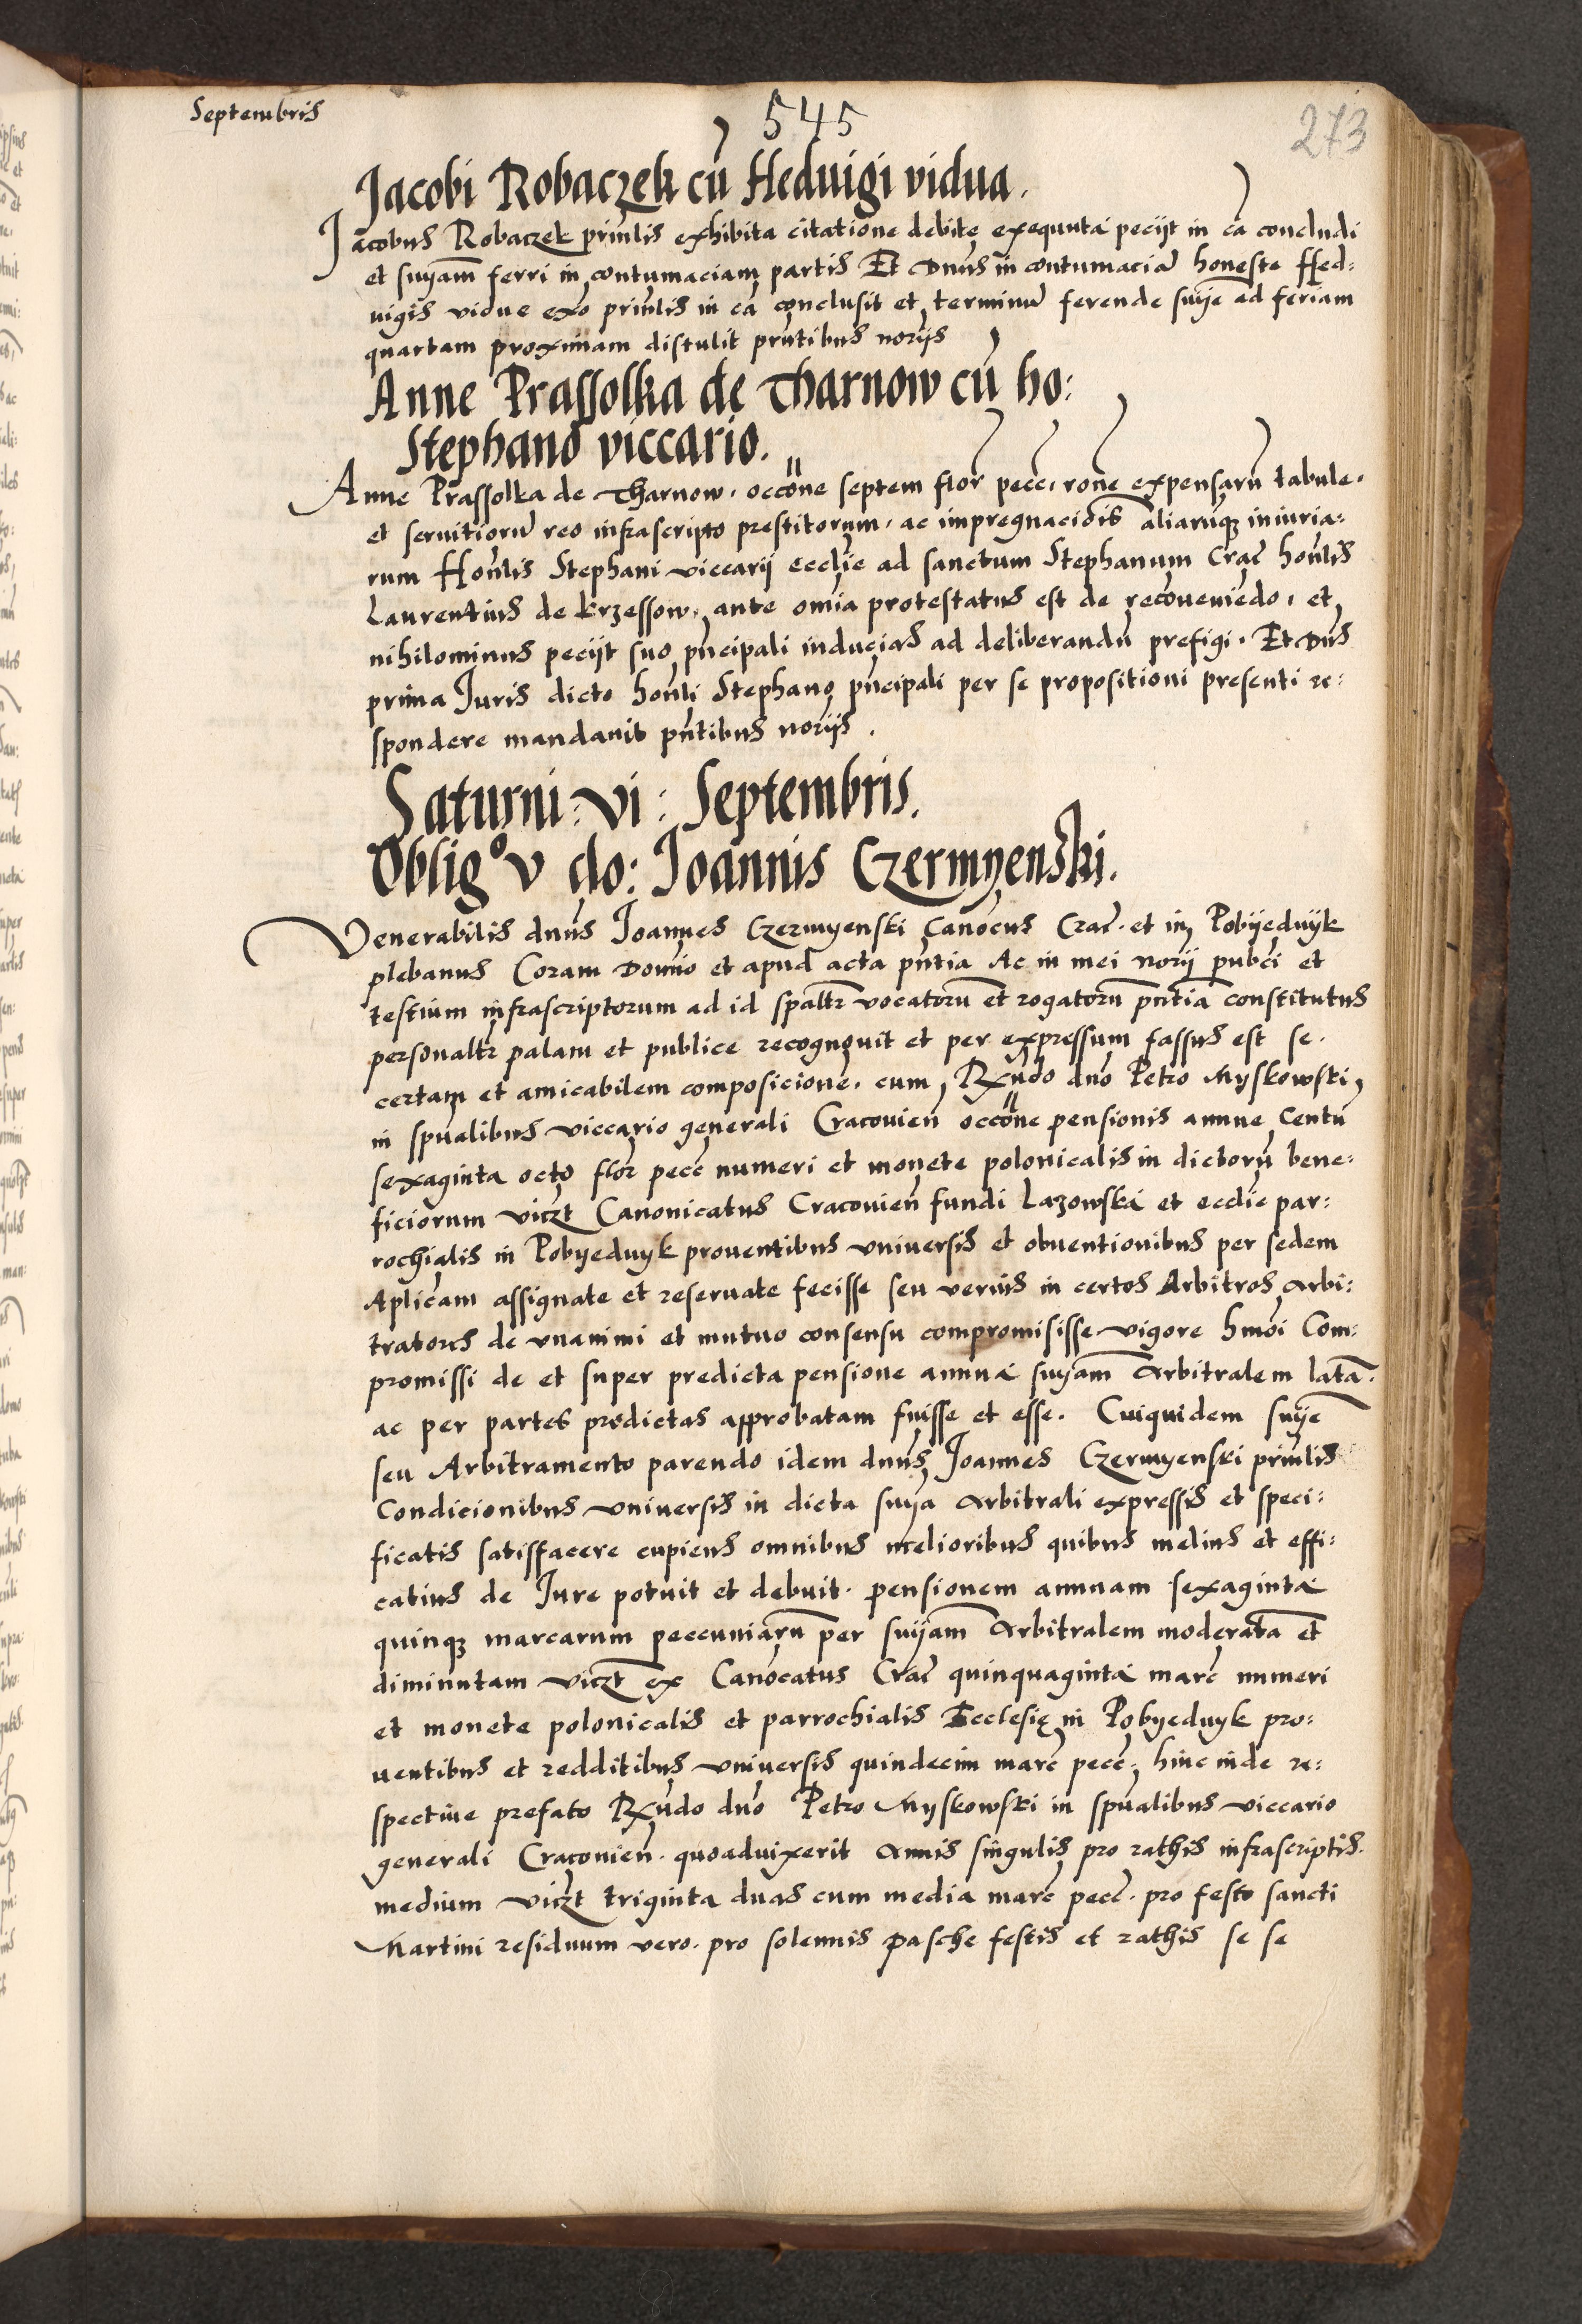 Septembris
545
273
Jacobi Robaczek cū Hedvigi vidua.
Jacobus Robaczek prinlis exhibita citatione debite exequuta peciit in cā concludi
et snyam ferri in contumaciam partis Et Dnus in contumaciā honeste Hed:
uigis vidue exo prinlis in cā conclusit et terminū ferende snye ad feriam
quartam proximam distulit pntibus noriis
Anne Prassolka de Tharnow cū ho:
Stephano viccario.
Anne Prassolka de Tharnow. occōne septem flor pecc. rone expensarū tabule.
et seruitiorū reo infrascripto prestitorum. ac impregnaciōis aliarūque iniuria:
rum Honlis Stephani viccarii ecclie ad sanctum Stephanum Crac honlis
Laurentius de Krzessow. ante omia protestatus est de recoueniēdo. et
nihilominus peciit suo pncipali inducias ad deliberandū prefigi. Et Dns
prima Juris dicto honli Stephano pncipali per se propositioni presenti re:
spondere mandauit pntibus noriis.
Saturni: vi: Septembris.
Obligo v do: Joannis Czermyenski.
Venerabilis dnus Joannes Czermyenski Canocus Crac. et in Pobyedvyk
plebanus Coram Domino et apud acta pntia Ac in mei norii pubci et
testium infrascriptorum ad id spaltr vocatorū et rogatorū pntia constitutus
personaltr palam et publice recognouit et per expressum fassus est se.
certam et amicabilem composicionē. cum Rndo dno Petro Myskowski
in spualibus viccario generali Cracouien occōne pensionis annue Centū
sexaginta octo flor pecc numeri et monete polonicalis in dictorū bene:
ficiorum viczt Canonicatus Cracouien fundi Lazowska et ecclie par:
rochialis in Pobyedvyk prouentibus vniuersis et obuentionibus per sedem
Aplicam assignate et reseruate fecisse seu verius in certos Arbitros Arbi:
tratores de vnanimi et mutuo consensu compromisisse vigore hmōi Com:
promissi de et super predicta pensione annua snyam Arbitralem latā.
ac per partes predictas approbatam fuisse et esse. Cuiquidem snye
seu Arbitramento parendo idem dnus Joannes Czermyenski prinlis
Condicionibus vniuersis in dicta snya Arbitrali expressis et speci:
ficatis satisfacere cupiens omnibus melioribus quibus melius et effi:
catius de Jure potuit et debuit. pensionem annuam sexaginta
quinque marcarum peccuniarū per snyam Arbitralem moderatā et
diminutam viczt ex Canocatus Crac quinquaginta marc numeri
et monete polonicalis et parrochialis Ecclesię in Pobyedvyk pro:
uentibus et redditibus vniuersis quindecim marc pecc. hinc inde re:
spectiue prefato Rndo dno Petro Myskowski in spualibus viccario
generali Cracouien. quoaduixerit Annis singulis pro rathis infrascriptis.
medium viczt triginta duas cum media marc pecc. pro festo sancti
Martini residuum vero. pro solennis Pasche festis et rathis se se